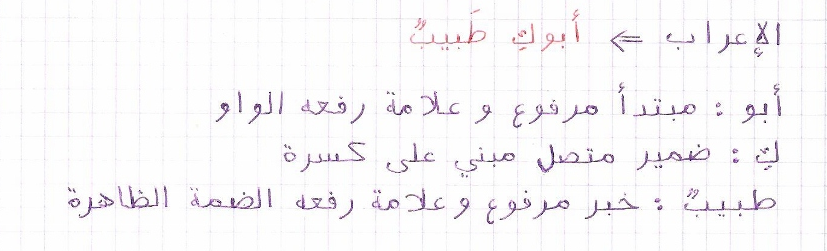 الإعراب ⇐ أبوكِ طَبيبٌ
أبو : مبتدأ مرفوع و علامة رفعه الواو
كِ : ضمير متصل مبني على كسرة
طبيبٌ : خبر مرفوع و علامة رفعه الضمة الظاهرة